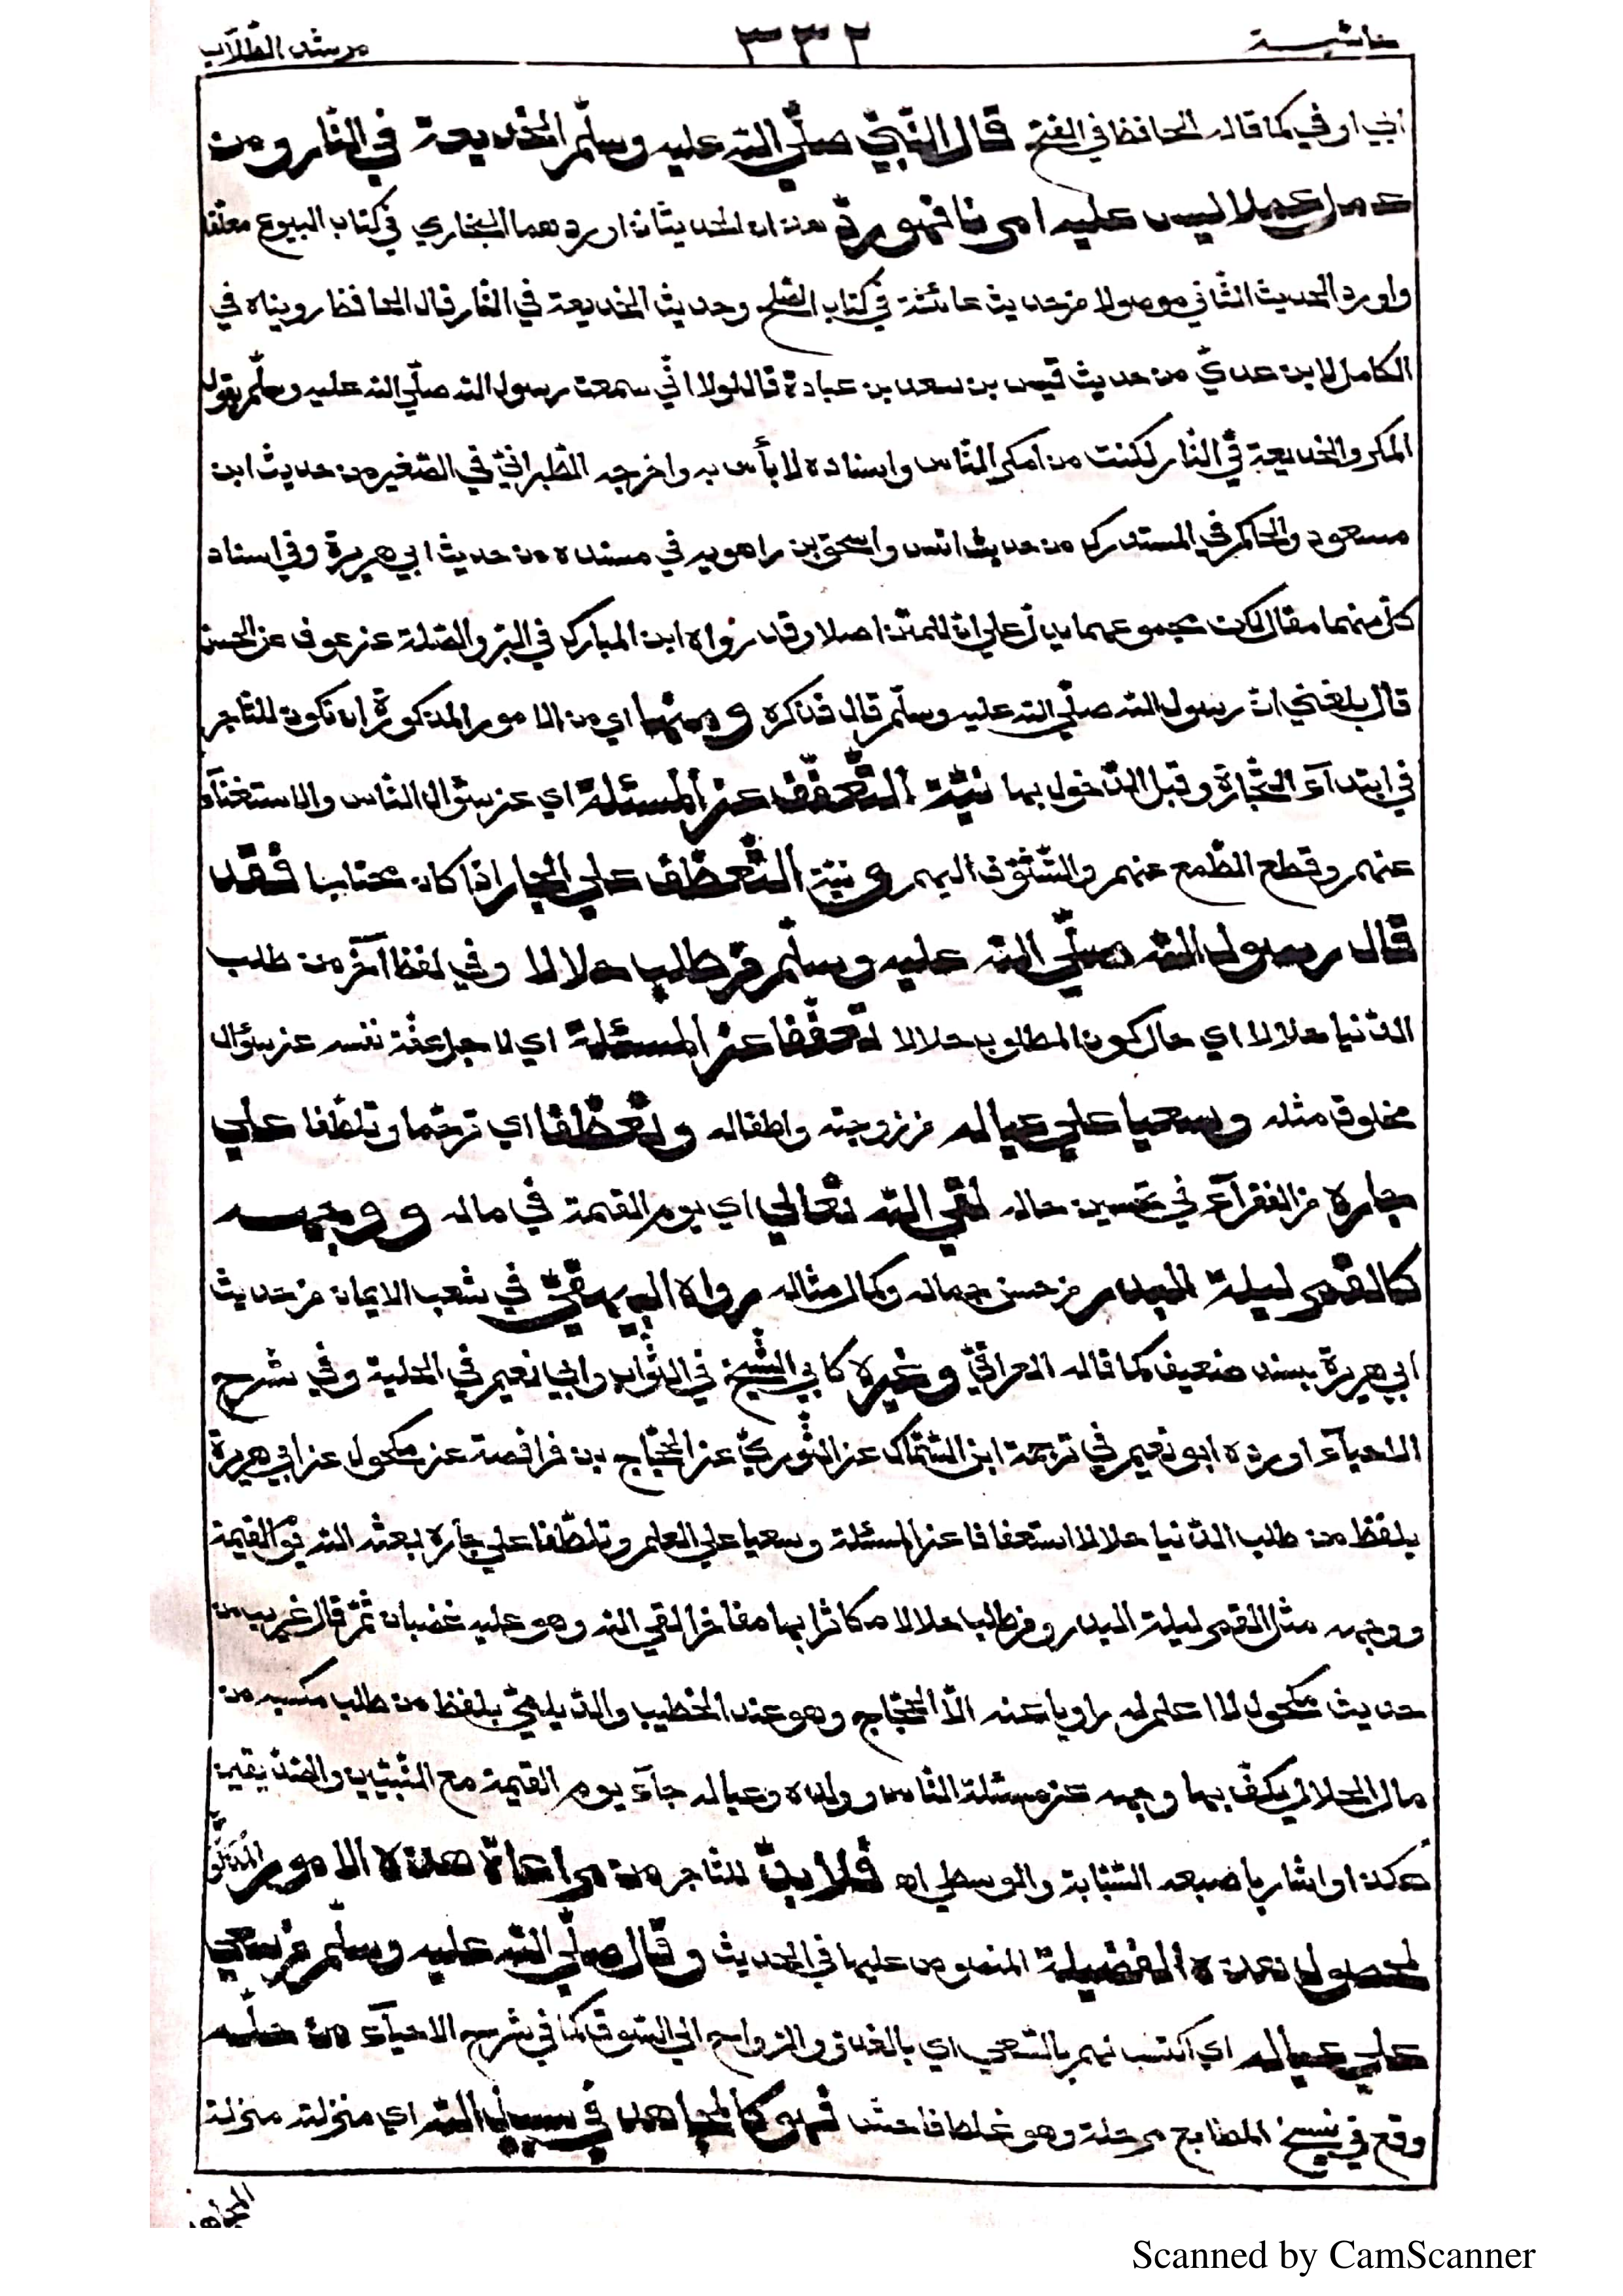 حاشية ٣٣٢ مرشد الطلّاب
ابي اوفى كما قاله الحافظ في الفتح قال النّبيّ صلّى الله عليه وسلّم الخديعة في النّار ومن
عمل عملا ليس عليه امرنا فهو ردّ هذان الحديثان اوردهما البخاري في كتاب البيوع معلّقا
واورد الحديث الثّاني موصولا من حديث عائشة في كتاب الصّلح وحديث الخديعة في النّار قال الحافظ رويناه في
الكامل لابن عديّ من حديث قيس بن سعد بن عبادة قال لولا انّي سمعت رسول الله صلّى الله عليه وسلّم يقول
المكر والخديعة في النّار لكنت من امكر النّاس واسناده لا بأس به واخرجه الطّبرانيّ في الصّغير من حديث ابن
مسعود والحاكم في المستدرك من حديث انس واسحق بن راهويه في مسنده من حديث ابي هريرة وفي اسناد
كلّ منهما مقال لكن مجموعهما يدلّ على انّ للمتن اصلا وقد رواه ابن المبارك في البرّ والصّلة عن عوف عن الحسن
قال بلغني انّ رسول الله صلّى الله عليه وسلّم قال فذكره ومنها اي من الامور المذكورة ان تكون للتّاجر
في ابتدآء التّجارة وقبل الدّخول بها نيّة التّعفّف عن المسئلة اي عن سؤال النّاس والاستغنآء
عنهم وقطع الطّمع عنهم والتّشوّف اليهم و نيّة التّعطّف على الجار اذا كان محتاجا فقد
قال رسول الله صلّى الله عليه وسلّم من طلب حلالا وفي لفظ آخر من طلب
الدّنيا حلالا اي حال كون المطلوب حلالا تعفّفا عن المسئلة اي لاجل عفّة نفسه عن سؤال
مخلوق مثله وسعيا على عياله من زوجته واطفاله وتعطّفا اي ترحّما وتلطّفا على
جاره من الفقرآء في تحسين حاله لقي الله تعالى اي يوم القيمة في ماله و ووجهه
كالقمر ليلة البدر من حسن جماله وكمال مثاله رواه البيهقيّ في شعب الايمان من حديث
ابي هريرة بسند ضعيف كما قاله العراقيّ وغيره كابي الشّيخ في الثّواب وابي نعيم في الحلية وفي شرح
الاحيآء اورده ابو نعيم في ترجمة ابن السّمّاك عن الثّوريّ عن الحجّاج بن فرافصة عن مكحول عن ابي هريرة
بلفظ من طلب الدّنيا حلالا استعفافا عن المسئلة وسعيا على العلم وتلطّفا على جاره بعثه الله يوم القيمة
ووجهه مثل القمر ليلة البدر ومن طلبها حلالا مكاثرا بها مفاخرا لقي الله وهو عليه غضبان ثمّ قال غريب من
حديث مكحول لا اعلم له راويا عنه الّا الحجّاج وهو عند الخطيب والدّيلميّ بلفظ من طلب مكسبه من
مال الحلال يكفّ بها وجهه عن مسئلة النّاس وولده وعياله جآء يوم القيمة مع النّبيّين والصّدّيقين
هكذا واشار باصبعه السّبّابة والوسطى اه فلا بدّ للتّاجر من مراعاة هذه الامور
لحصول هذه الفضيلة المنصوص عليها في الحديث وقال صلّى الله عليه وسلّم من سعى
على عياله اي اكتسب لهم بالسّعي اي بالغدوّ والرّواح الى السّوق كما في شرح الاحيآء من حلّه
وقع في نسخ المطابع مرحلة وهو غلط فاحش فهو كالمجاهد في سبيل الله اي منزلته منزلة
المجاهد
Scanned by CamScanner